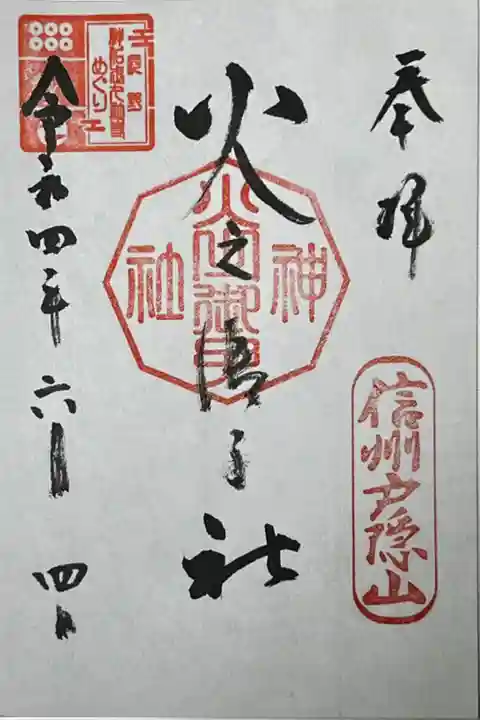 奉拝
信州戸隠山
火之御子社
神社
令和四年六月四日
めぐり